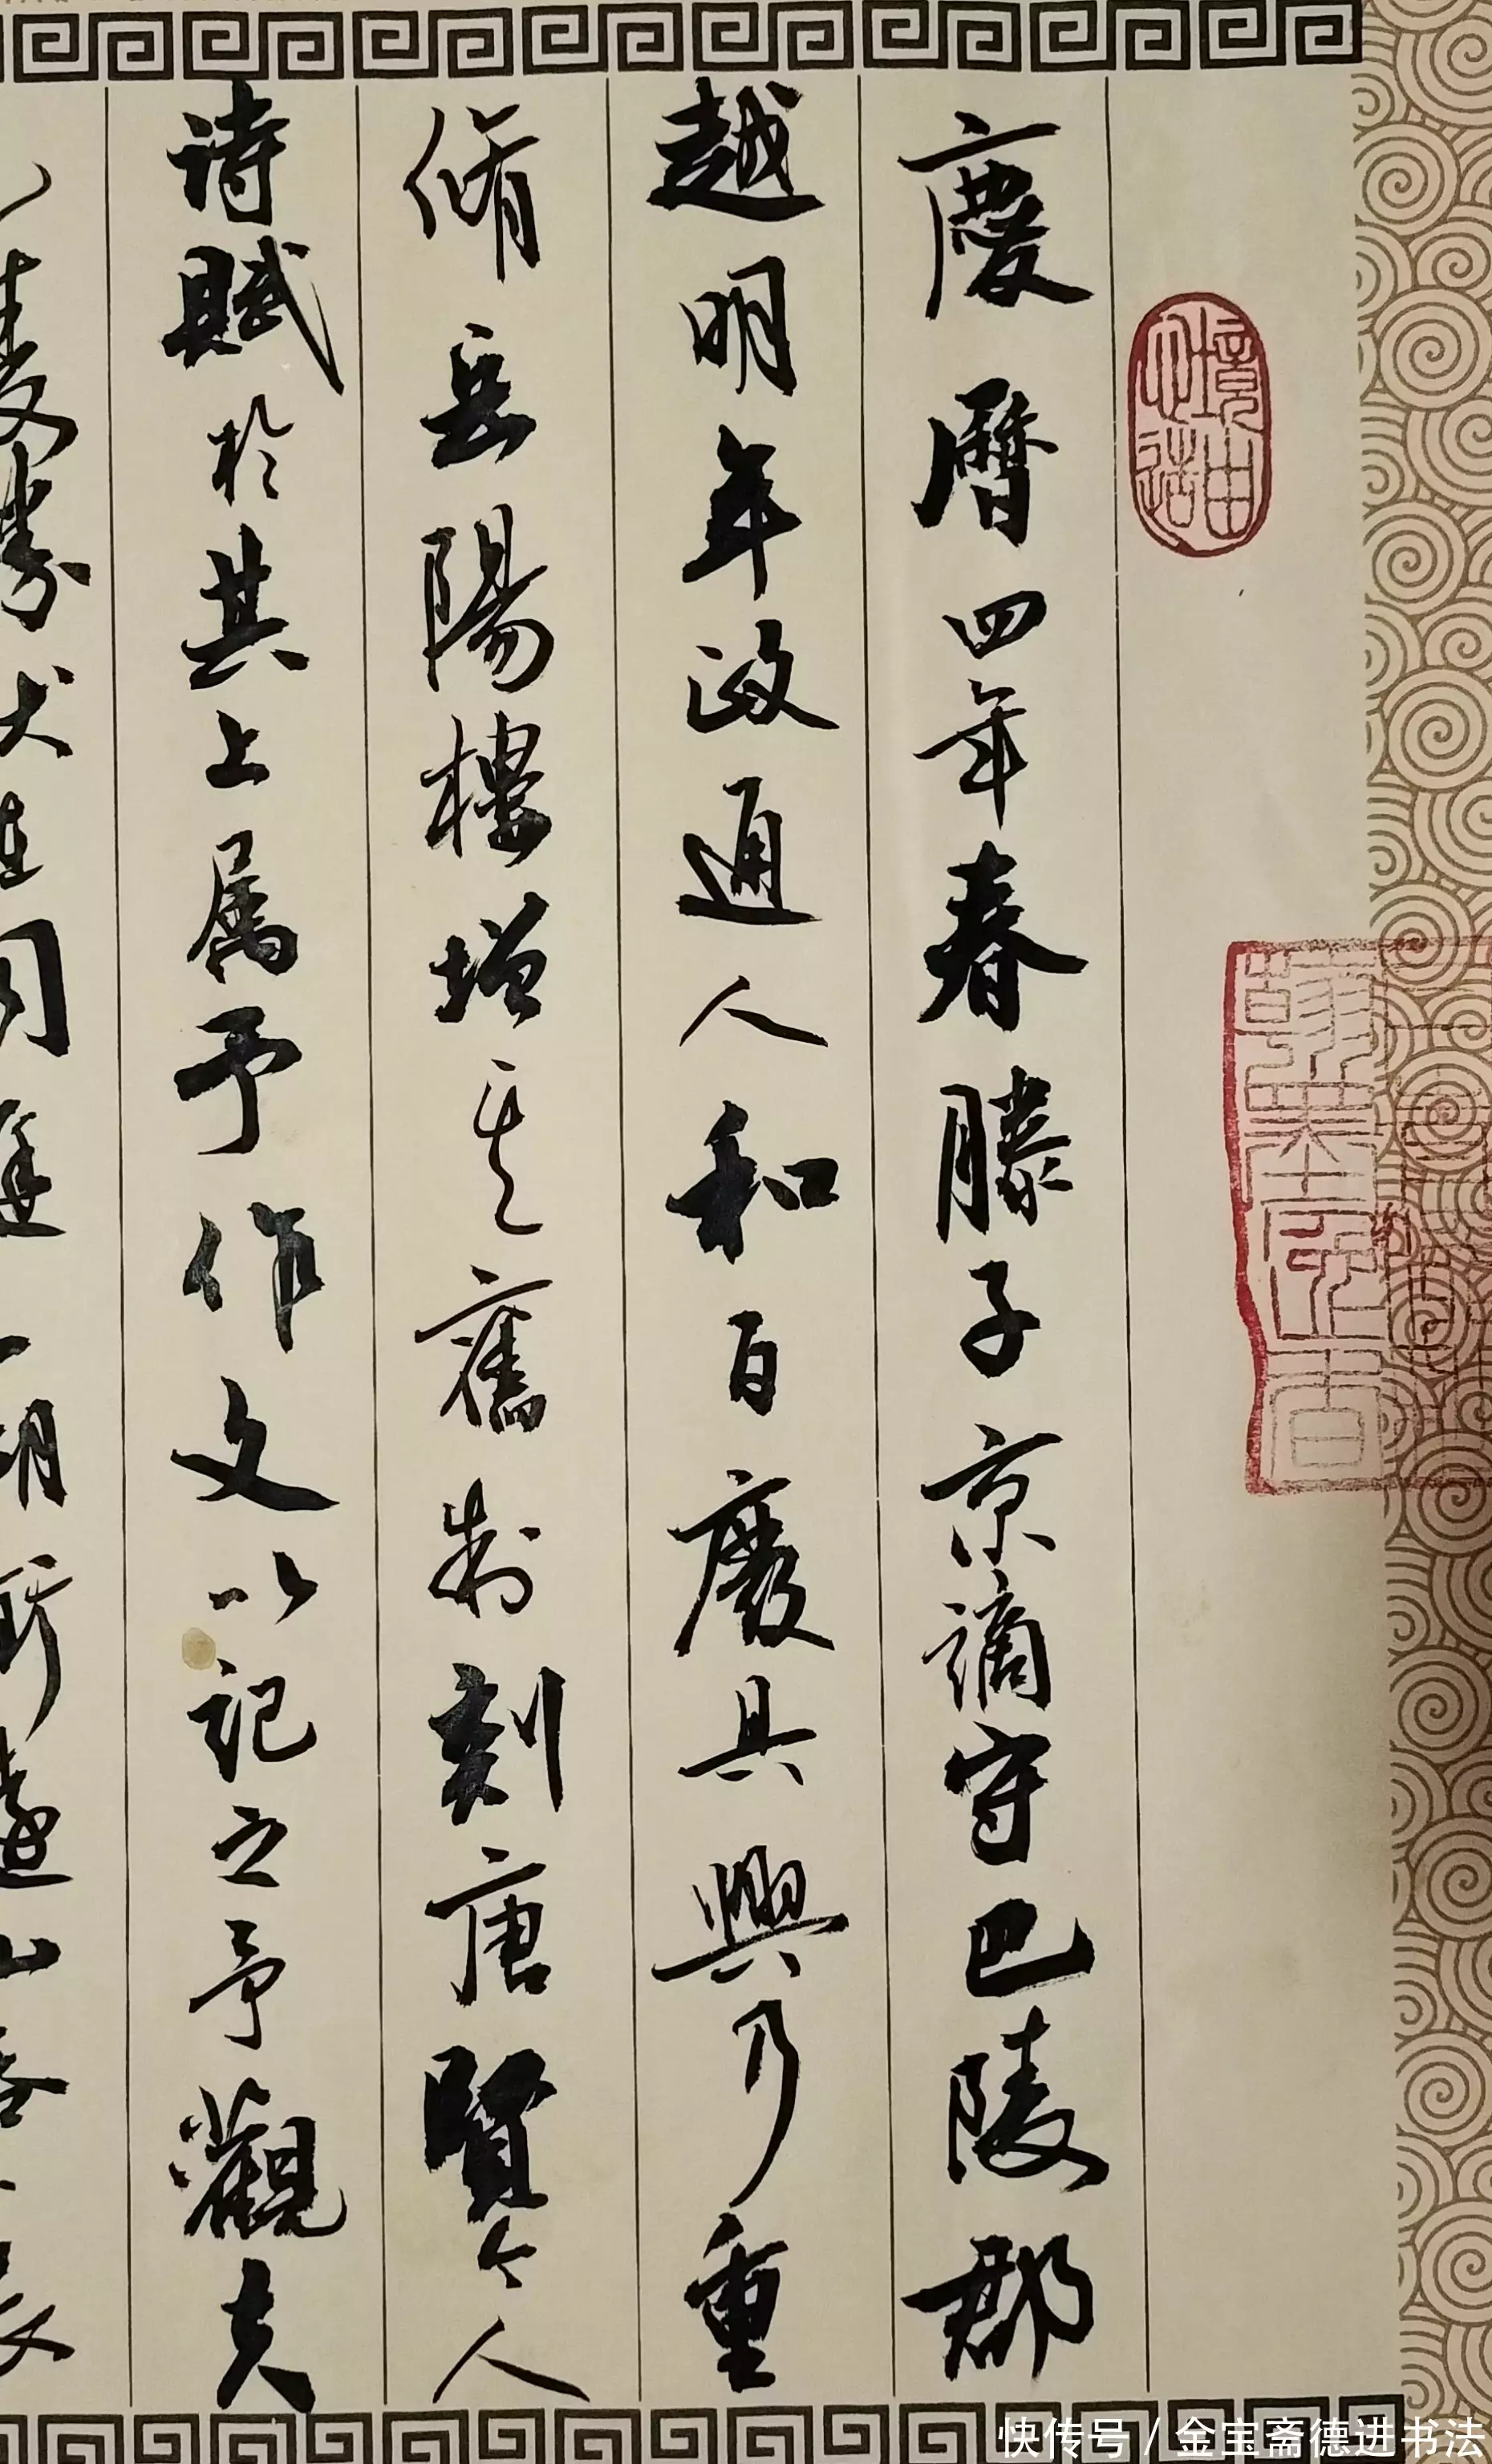 境由心造
慶曆四年春滕子京謫守巴陵郡
越明年政通人和百廢具興乃重
脩岳陽樓增其舊制刻唐賢今人
詩賦於其上属予作文以記之予觀夫
快传号 / 金宝斋德进书法